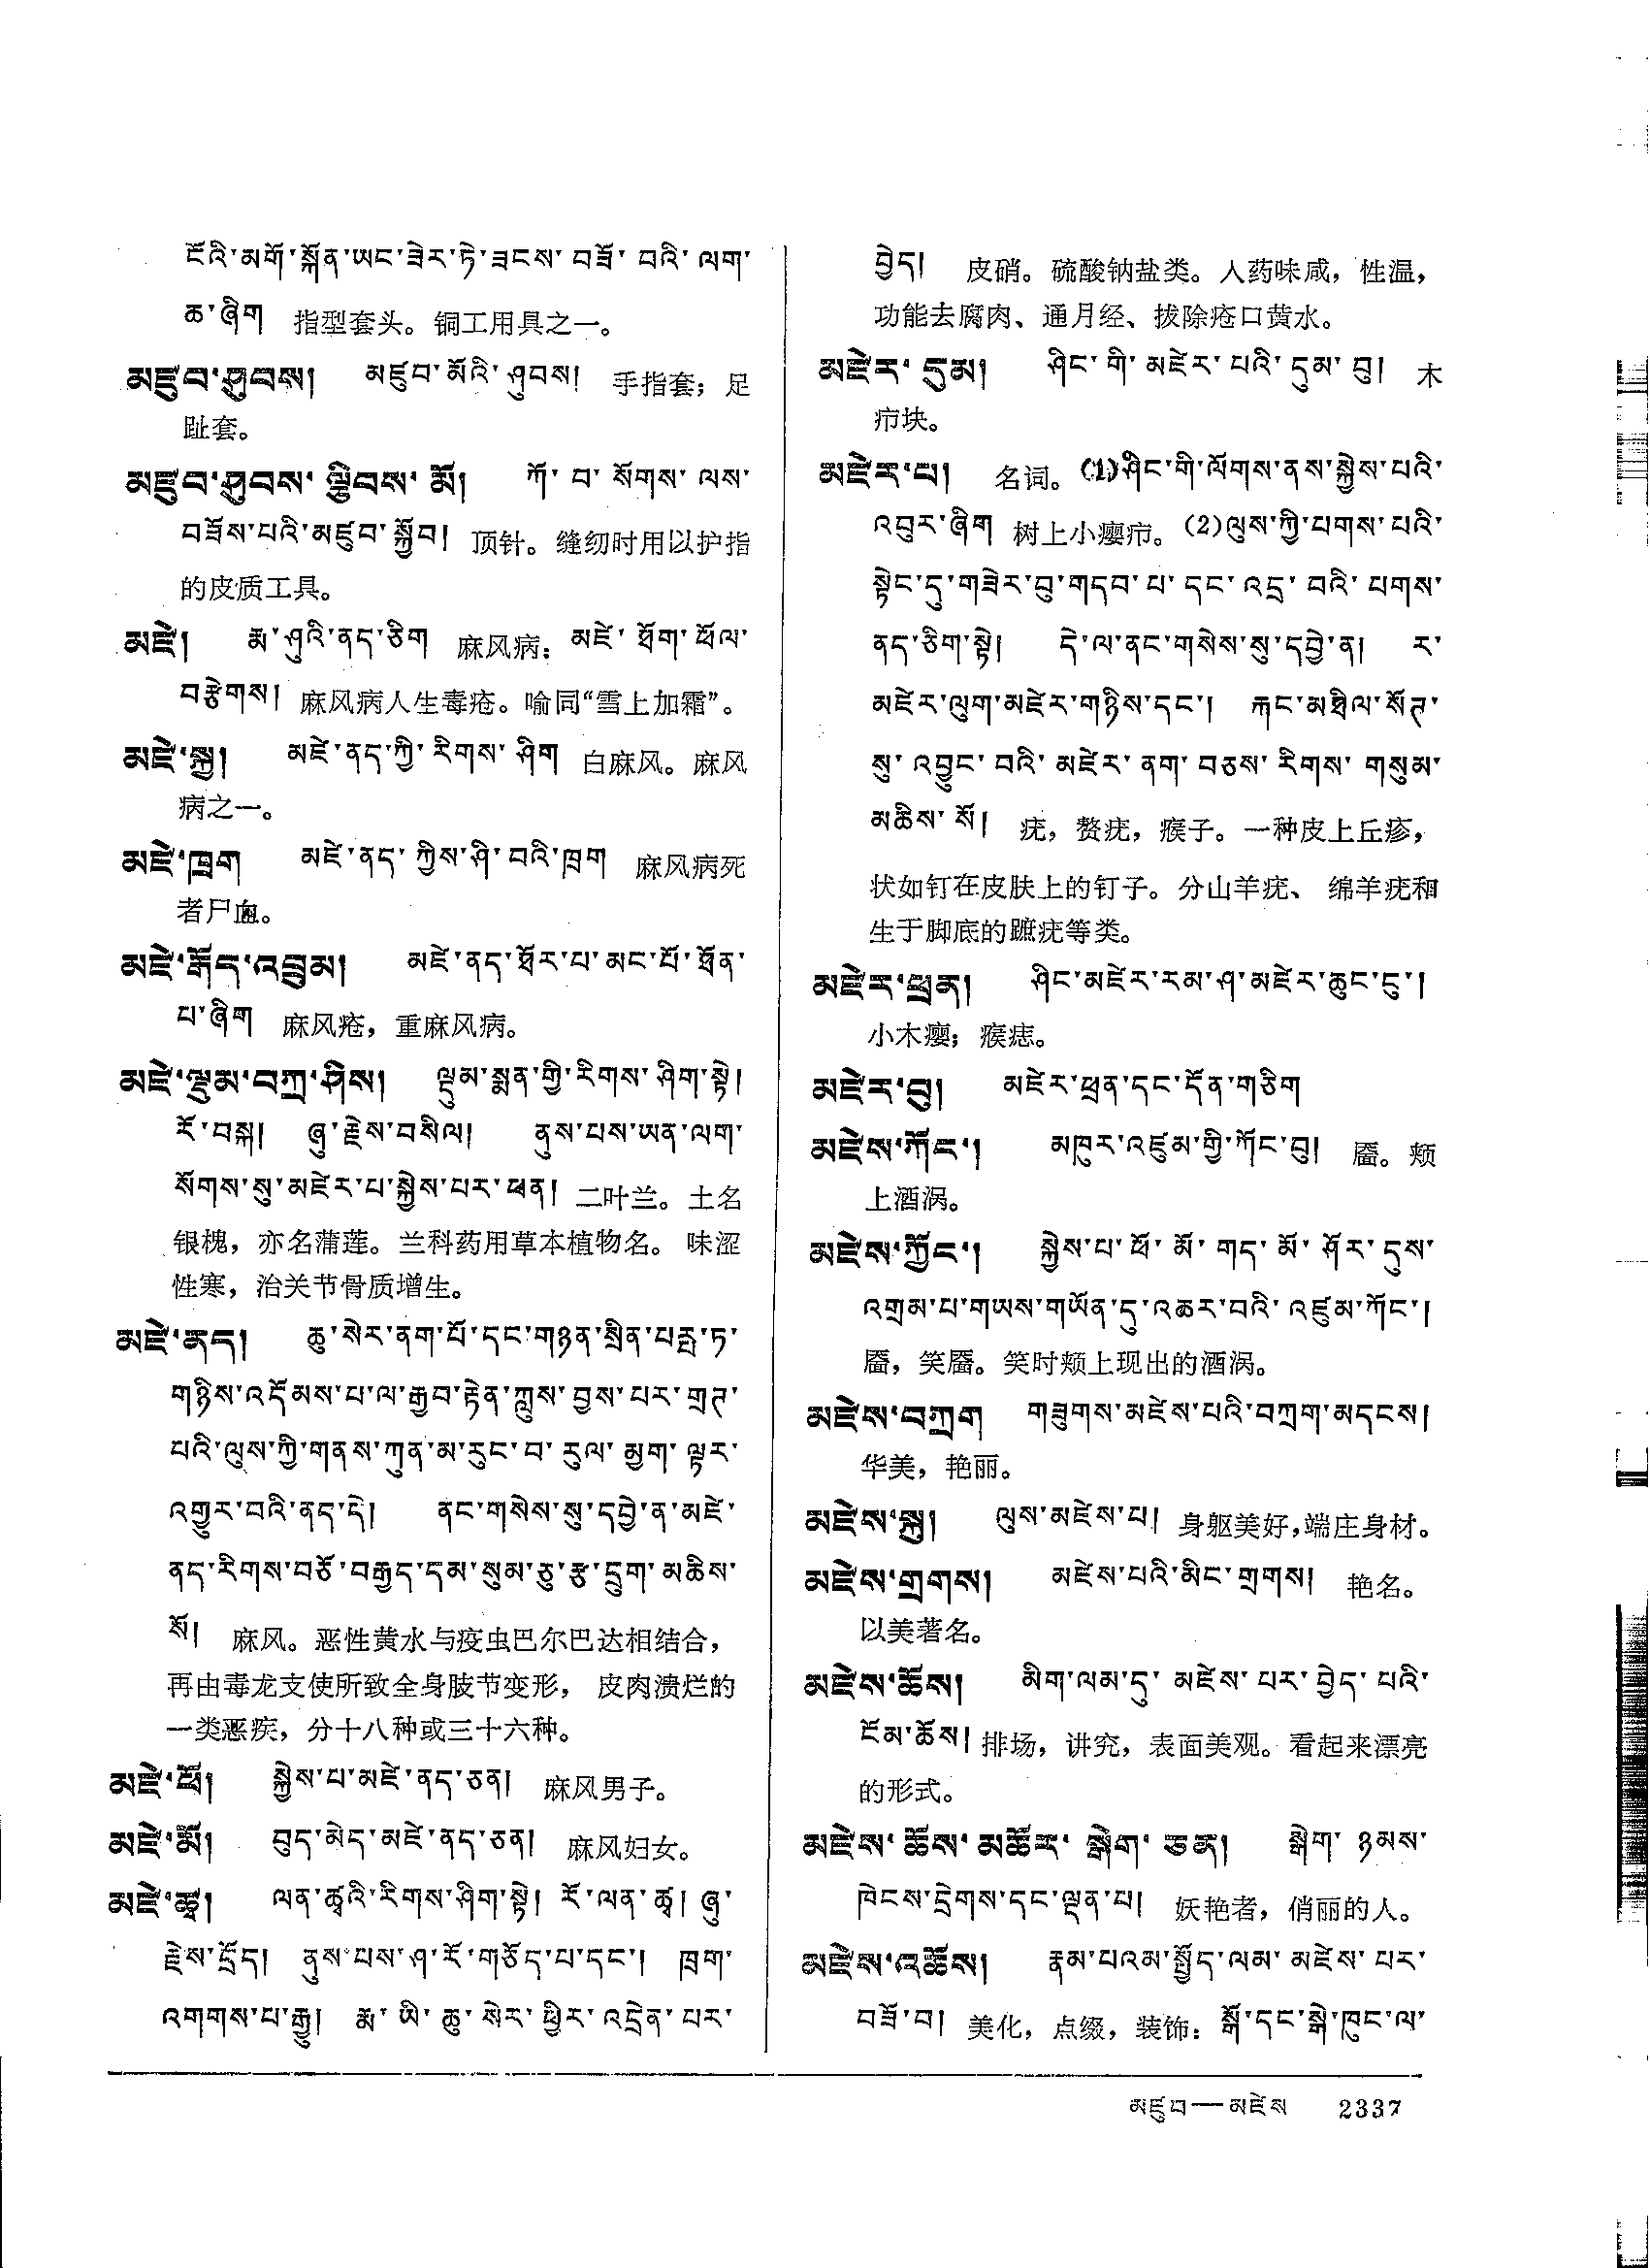 ངོའི་མགོ་སྐོན་ཡང་ཟེར་ཏེ་ཟངས་བཟོ་བའི་ལག་
ཆ་ཞིག 指型套头。铜工用具之一。
མཛུབ་ཤུབས། མཛུབ་མོའི་ཤུབས། 手指套；足
趾套。
མཛུབ་ཤུབས་ལྕིབས་མོ། ཀོ་བ་སོགས་ལས་
བཟོས་པའི་མཛུབ་སྐྱོབ། 顶针。缝纫时用以护指
的皮质工具。
མཛེ། རྨ་ཤུའི་ནད་ཅིག 麻风病：མཛེ་ཐོག་ཕོལ་
བརྩེགས། 麻风病人生毒疮。喻同“雪上加霜”。
མཛེ་སྐྱ། མཛེ་ནད་ཀྱི་རིགས་ཤིག 白麻风。麻风
病之一。
མཛེ་ཁྲག མཛེ་ནད་ཀྱིས་ཤི་བའི་ཁྲག 麻风病死
者尸血。
མཛེ་རྒོད་འབྲུམ། མཛེ་ནད་ཐོར་པ་མང་པོ་ཐོན་
པ་ཞིག 麻风疮，重麻风病。
མཛེ་ལྡུམ་བཀྲ་ཤིས། ལྡུམ་སྨན་གྱི་རིགས་ཤིག་སྟེ།
རོ་བསྐ། ཞུ་རྗེས་བསིལ། ནུས་པས་ཡན་ལག་
སོགས་སུ་མཛེར་པ་སྐྱེས་པར་ཕན། 二叶兰。土名
银槐，亦名蒲莲。兰科药用草本植物名。味涩
性寒，治关节骨质增生。
མཛེ་ནད། ཆུ་སེར་ནག་པོ་དང་གཉན་སྲིན་པརྦ་ཏ་
གཉིས་འདོམས་པ་ལ་རྒྱབ་རྟེན་ཀླུས་བྱས་པར་གྲཊ་
པའི་ལུས་ཀྱི་གནས་ཀུན་མ་རུང་བ་རུལ་མྱག་ལྟར་
འགྱུར་བའི་ནད་དེ། ནང་གསེས་སུ་དབྱེ་ན་མཛེ་
ནད་རིགས་བཅོ་བརྒྱད་དམ་སུམ་ཅུ་རྩ་དྲུག་མཆིས་
སོ། 麻风。恶性黄水与疫虫巴尔巴达相结合，
再由毒龙支使所致全身肢节变形，皮肉溃烂的
一类恶疾，分十八种或三十六种。
མཛེ་ཕོ། སྐྱེས་པ་མཛེ་ནད་ཅན། 麻风男子。
མཛེ་མོ། བུད་མེད་མཛེ་ནད་ཅན། 麻风妇女。
མཛེ་ཚྭ། ལན་ཚྭའི་རིགས་ཤིག་སྟེ། རོ་ལན་ཚྭ། ཞུ་
རྗེས་དྲོད། ནུས་པས་ཤ་རོ་གཅོད་པ་དང་། ཁྲག་
འགགས་པ་རྒྱུ། རྨ་ཡི་ཆུ་སེར་ཕྱིར་འདྲེན་པར་
བྱེད། 皮硝。硫酸钠盐类。入药味咸，性温，
功能去腐肉、通月经、拔除疮口黄水。
མཛེར་དུམ། ཤིང་གི་མཛེར་པའི་དུམ་བུ། 木
疖块。
མཛེར་པ། 名词。(1)ཤིང་གི་ལོགས་ནས་སྐྱེས་པའི་
འབུར་ཞིག 树上小瘿疖。(2)ལུས་ཀྱི་པགས་པའི་
སྟེང་དུ་གཟེར་བུ་གདབ་པ་དང་འདྲ་བའི་པགས་
ནད་ཅིག་སྟེ། དེ་ལ་ནང་གསེས་སུ་དབྱེ་ན། ར་
མཛེར་ལུག་མཛེར་གཉིས་དང་། རྐང་མཐིལ་སོཊ་
སུ་འབྱུང་བའི་མཛེར་ནག་བཅས་རིགས་གསུམ་
མཆིས་སོ། 疣，赘疣，瘊子。一种皮上丘疹，
状如钉在皮肤上的钉子。分山羊疣、绵羊疣和
生于脚底的蹠疣等类。
མཛེར་ཕྲན། ཤིང་མཛེར་རམ་ཤ་མཛེར་ཆུང་ངུ་།
小木瘿；瘊痣。
མཛེར་བུ། མཛེར་ཕྲན་དང་དོན་གཅིག
མཛེས་ཀོང་། མཁུར་འཛུམ་གྱི་ཀོང་བུ། 靥。颊
上酒涡。
མཛེས་ཀྱོང་། སྐྱེས་པ་ཕོ་མོ་གད་མོ་ཤོར་དུས་
འགྲམ་པ་གཡས་གཡོན་དུ་འཆར་བའི་འཛུམ་ཀོང་།
靥，笑靥。笑时颊上现出的酒涡。
མཛེས་བཀྲག གཟུགས་མཛེས་པའི་བཀྲག་མདངས།
华美，艳丽。
མཛེས་སྐུ། ལུས་མཛེས་པ། 身躯美好，端庄身材。
མཛེས་གྲགས། མཛེས་པའི་མིང་གྲགས། 艳名。
以美著名。
མཛེས་ཆོས། མིག་ལམ་དུ་མཛེས་པར་བྱེད་པའི་
ངོམ་ཆོས། 排场，讲究，表面美观。看起来漂亮
的形式。
མཛེས་ཆོས་མཆོར་སྒེག་ཅན། སྒེག་ཉམས་
ཁེངས་དྲེགས་དང་ལྡན་པ། 妖艳者，俏丽的人。
མཛེས་འཆོས། རྣམ་པའམ་སྤྱོད་ལམ་མཛེས་པར་
བཟོ་བ། 美化，点缀，装饰：སྒོ་དང་སྒེ་ཁུང་ལ་
མཛུབ—མཛེས 2337